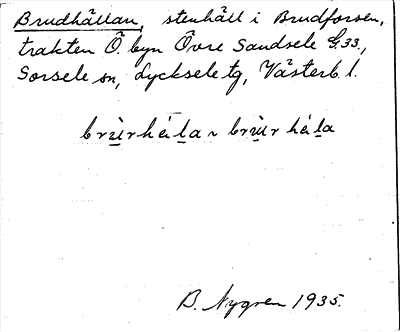 Brudhällan, stenhäll i Brudforsen,
trakten Ö. byn Övre Sandsele G.33.,
Sorsele sn, Lycksele tg, Västerb. l.
brùrhéla ~ brùrhéla
B. Nygren 1935.